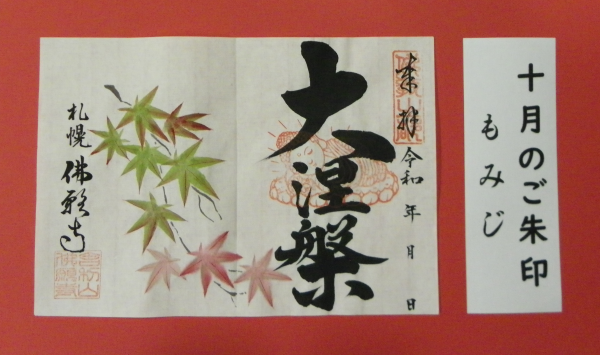 奉拝
令和 年 月 日
大涅槃
札幌 佛願寺
十月のご朱印
もみじ